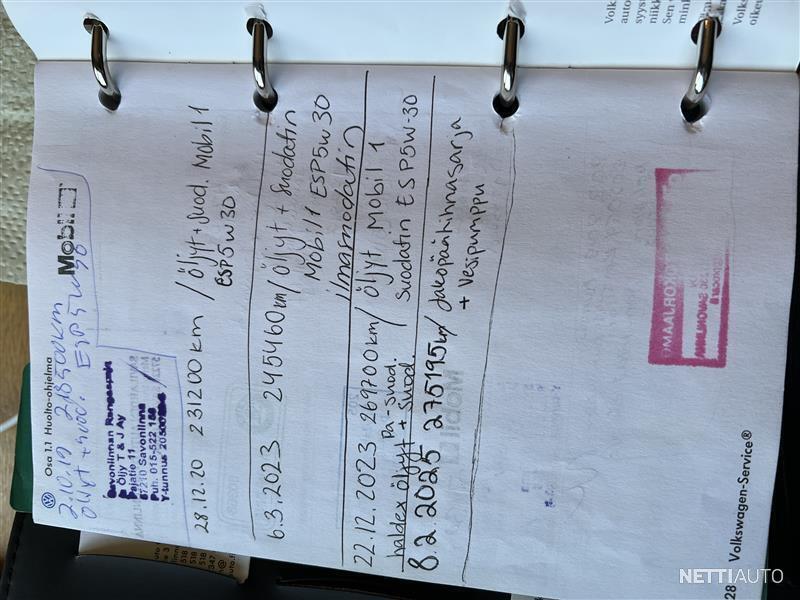 Osa 1.1 Huolto-ohjelma
2.10.19 218500km
Öljyt + suod. ESP 5w30
Mobil 1
Savonlinnan Rengaspiste
ja Öljy T & J Ay
Pajatie 11
57210 Savonlinna
Puh. 015-522
Y-tunnus
28.12.20 231200 km / Öljyt + suod. Mobil 1
ESP 5w30
6.3.2023 245460km / Öljyt + Suodatin
Mobil 1 ESP 5w30
ilmansuodatin
22.12.2023 269700km / Öljyt Mobil 1
Pa-suod. Suodatin ESP 5w-30
haldex öljyt + suod.
8.2.2025 275195km / Jakopäähihnasarja
+ Vesipumppu
28 Volkswagen-Service®
NETTIAUTO